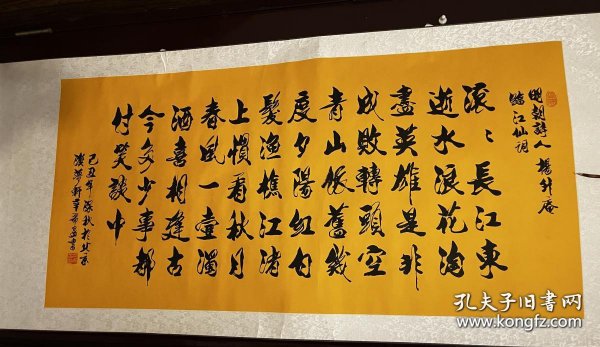 明朝詩人楊升庵
臨江仙詞
滚〻長江東
逝水浪花淘
盡英雄是非
成敗轉頭空
青山依舊幾
度夕陽紅白
髮漁樵江渚
上慣看秋月
春風一壺濁
酒喜相逢古
今多少事都
付笑談中
己丑年深秋於北京
孔夫子旧書网
www.kongfz.com